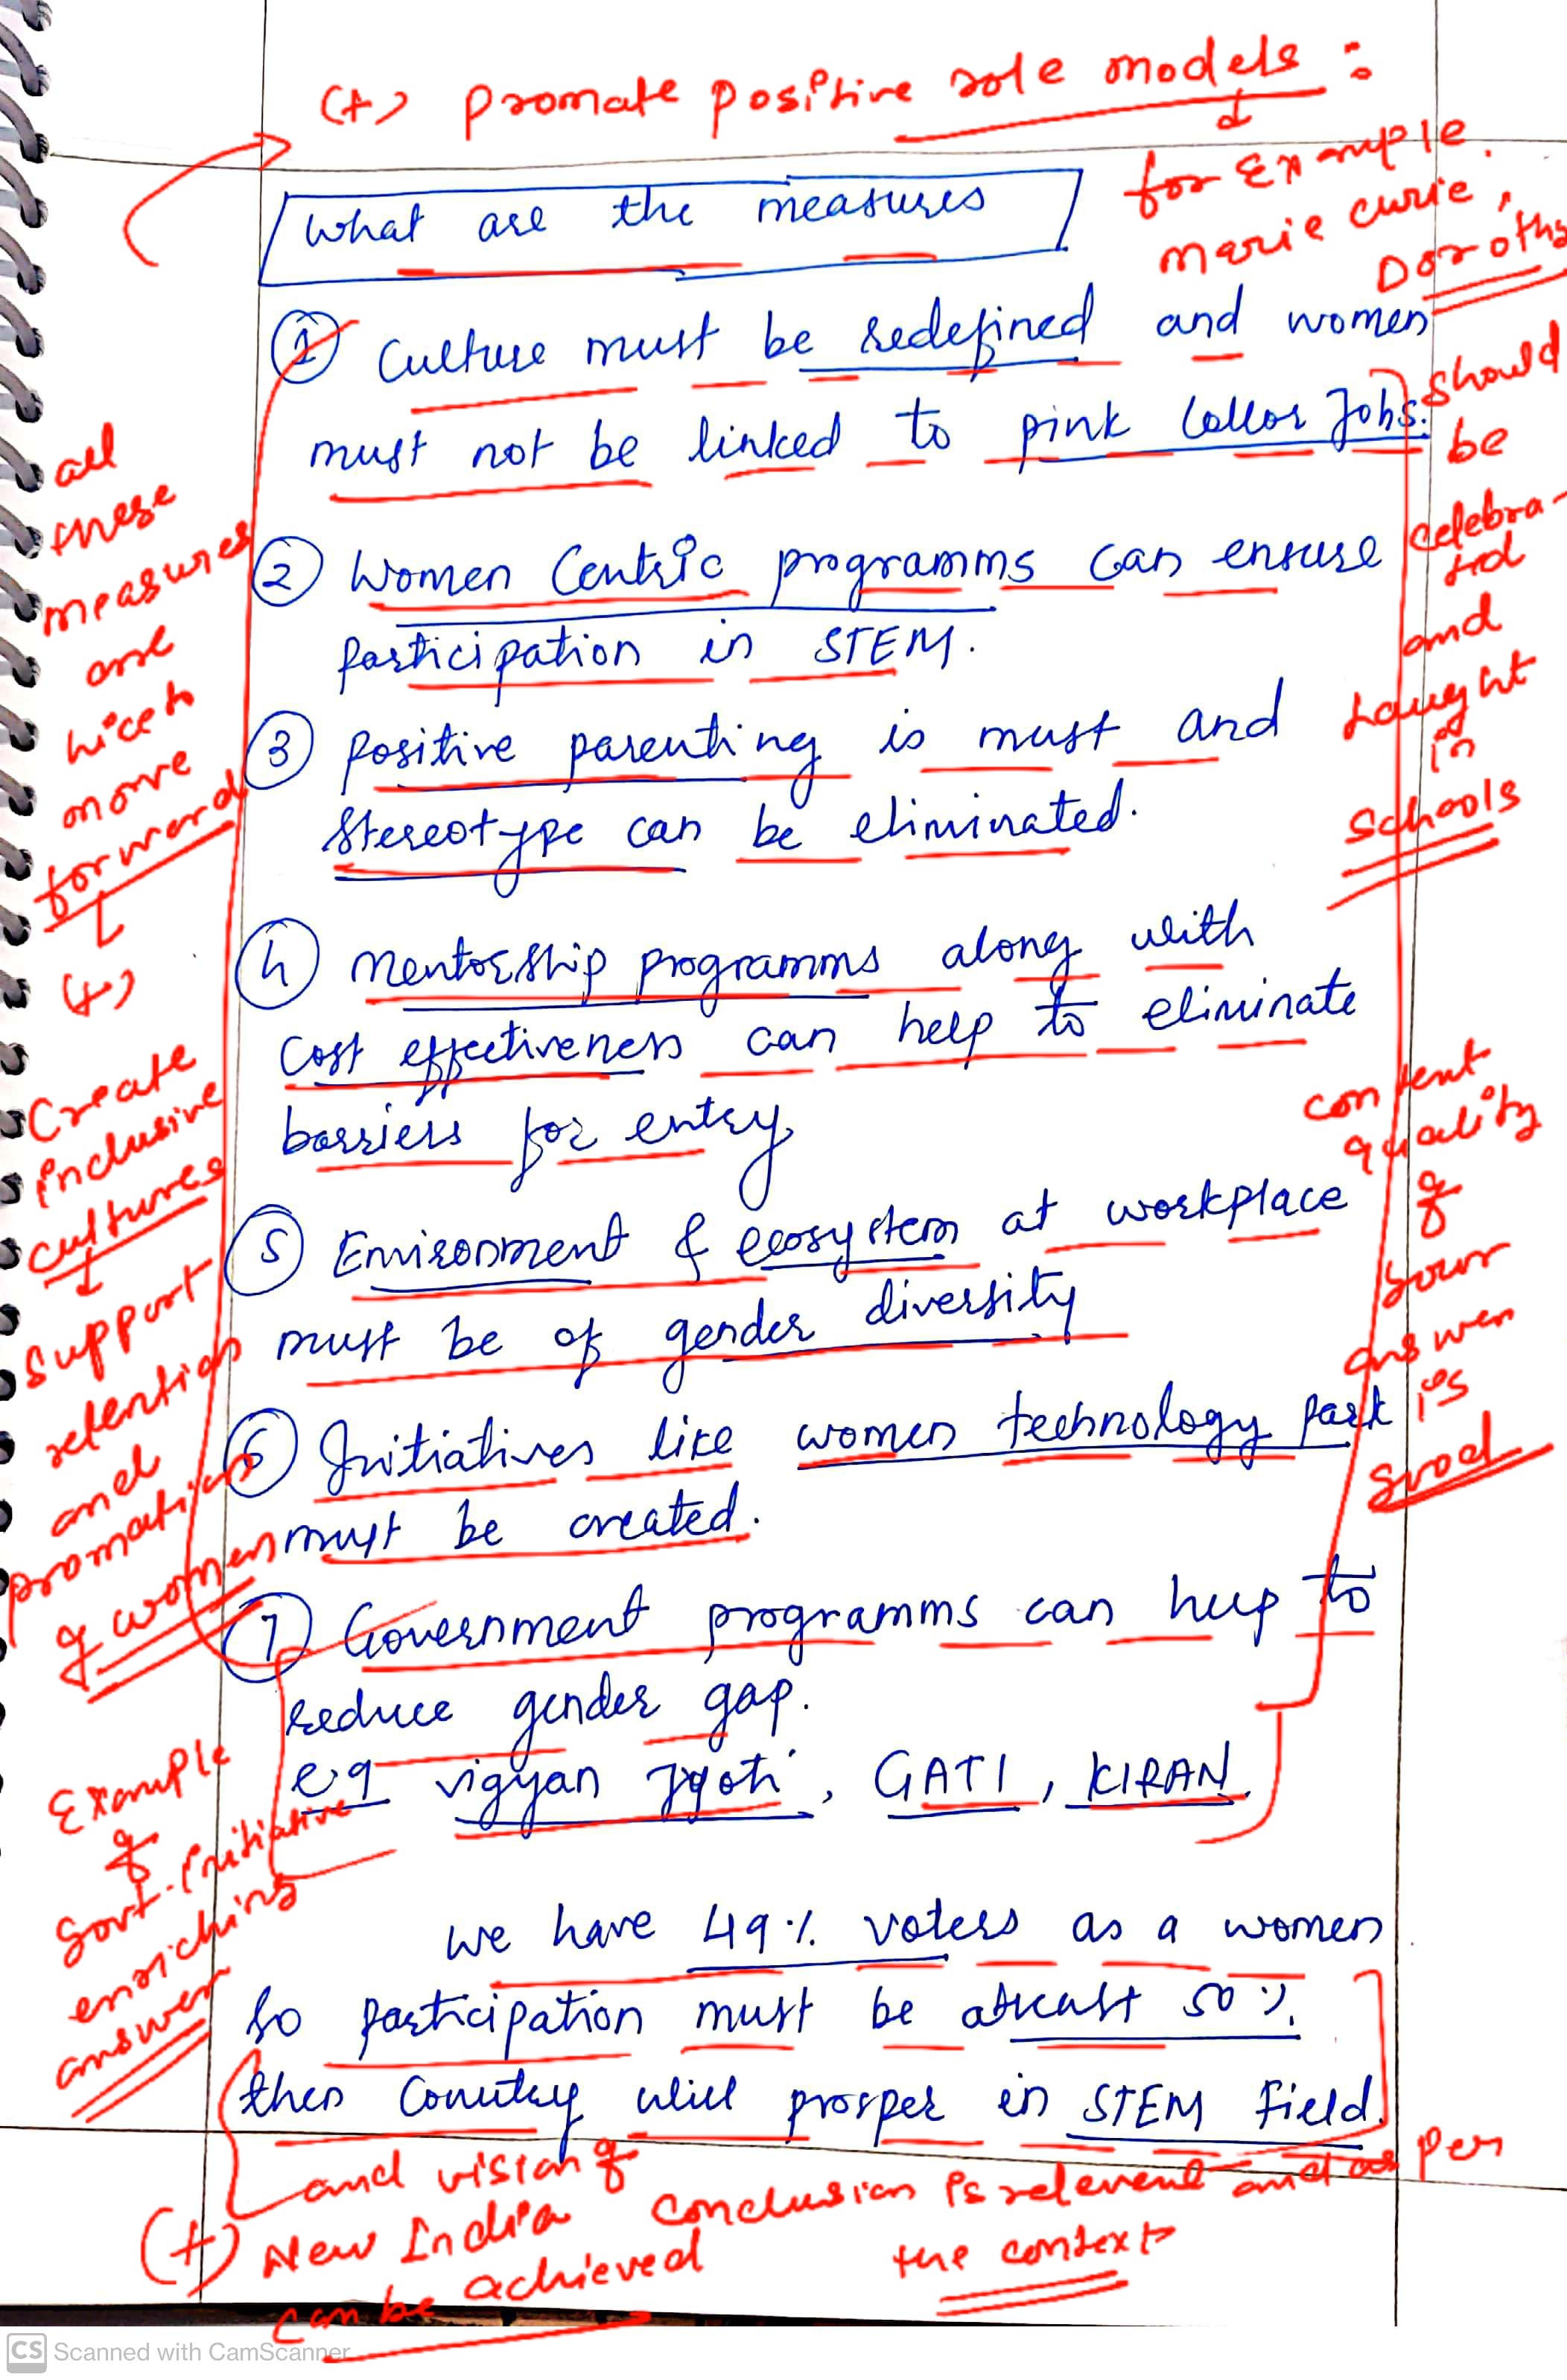 (+) promate positive role models :
for Example.
marie curie,
Dorothy
should
be
celebra-
ted
and
taught
in
schools
What are the measures
① Culture must be redefined and women
must not be linked to pink Collor Jobs.
② Women Centric programms can ensure
participation in STEM.
③ positive parenting is must and
stereotype can be eliminated.
④ mentorship programms along with
cost effectiveness can help to eliminate
barriers for entry
⑤ Environment & ecosystem at workplace
must be of gender diversity
⑥ Initiatives like women technology park
must be created.
⑦ Government programms can help to
reduce gender gap.
eg vigyan Jyoti, GATI, KIRAN
We have 49% voters as a women
So participation must be atleast 50%.
then Country will prosper in STEM field.
all
these
measures
are
nice to
move
forward
(+)
Create
inclusive
cultures
support
retention
and
promation
of women
Example
of
Govt. initiative
enriching
answer
content
quality
of
your
answer
is
good
(+) and vision of
New India
can be achieved
Conclusion is relevent and as per
the context
CS Scanned with CamScanner